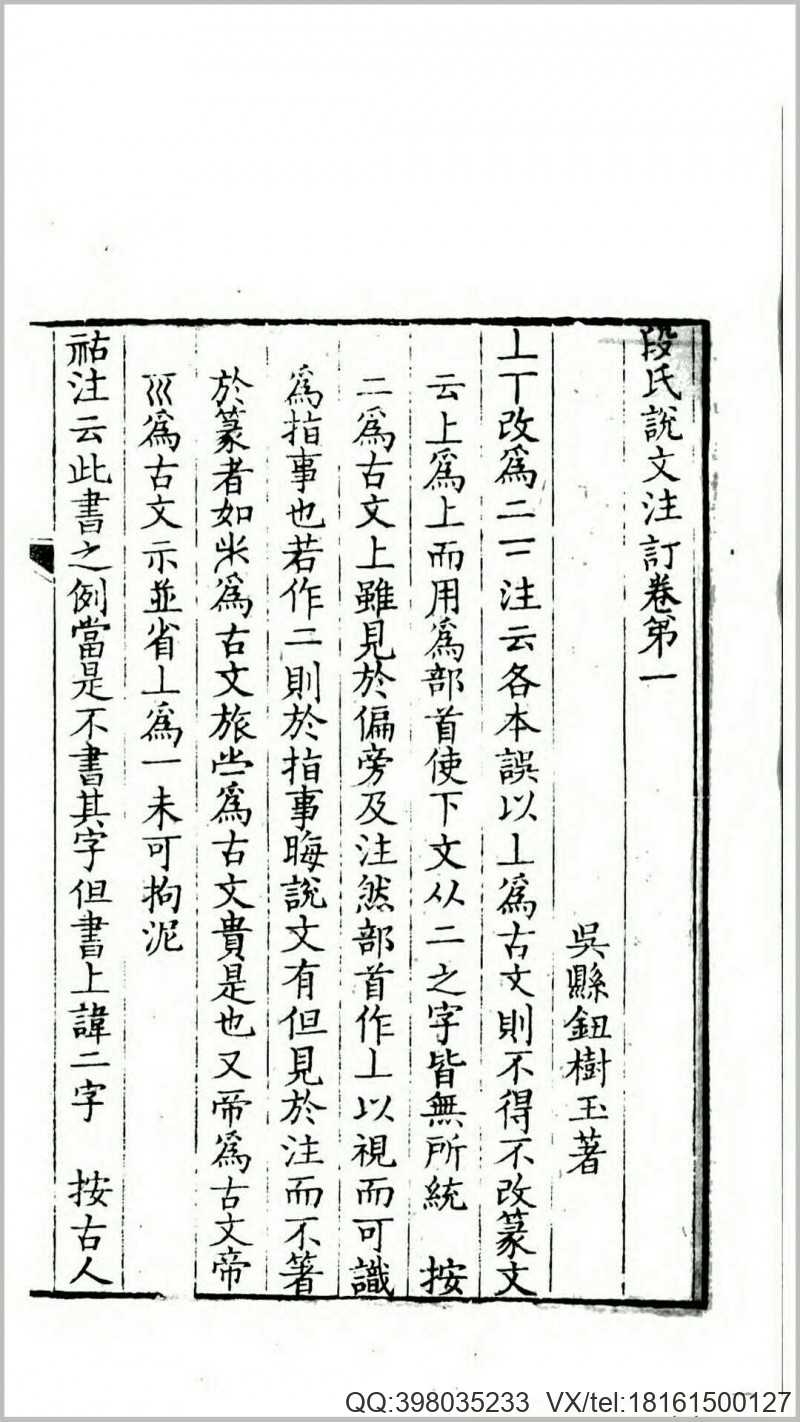 段氏說文注訂卷第一
吳縣鈕樹玉著
丄丅改爲二𠄟注云各本誤以丄爲古文則不得不改篆文
云上爲上而用爲部首使下文从二之字皆無所統　按
二爲古文上雖見於偏旁及注然部首作丄以視而可識
爲指事也若作二則於指事晦說文有但見於注而不著
於篆者如𣥏爲古文旅𠀐爲古文貴是也又帝爲古文帝
巛爲古文示並省丄爲一未可拘泥
祜注云此書之例當是不書其字但書上諱二字　按古人
QQ:398035233 VX/tel:18161500127